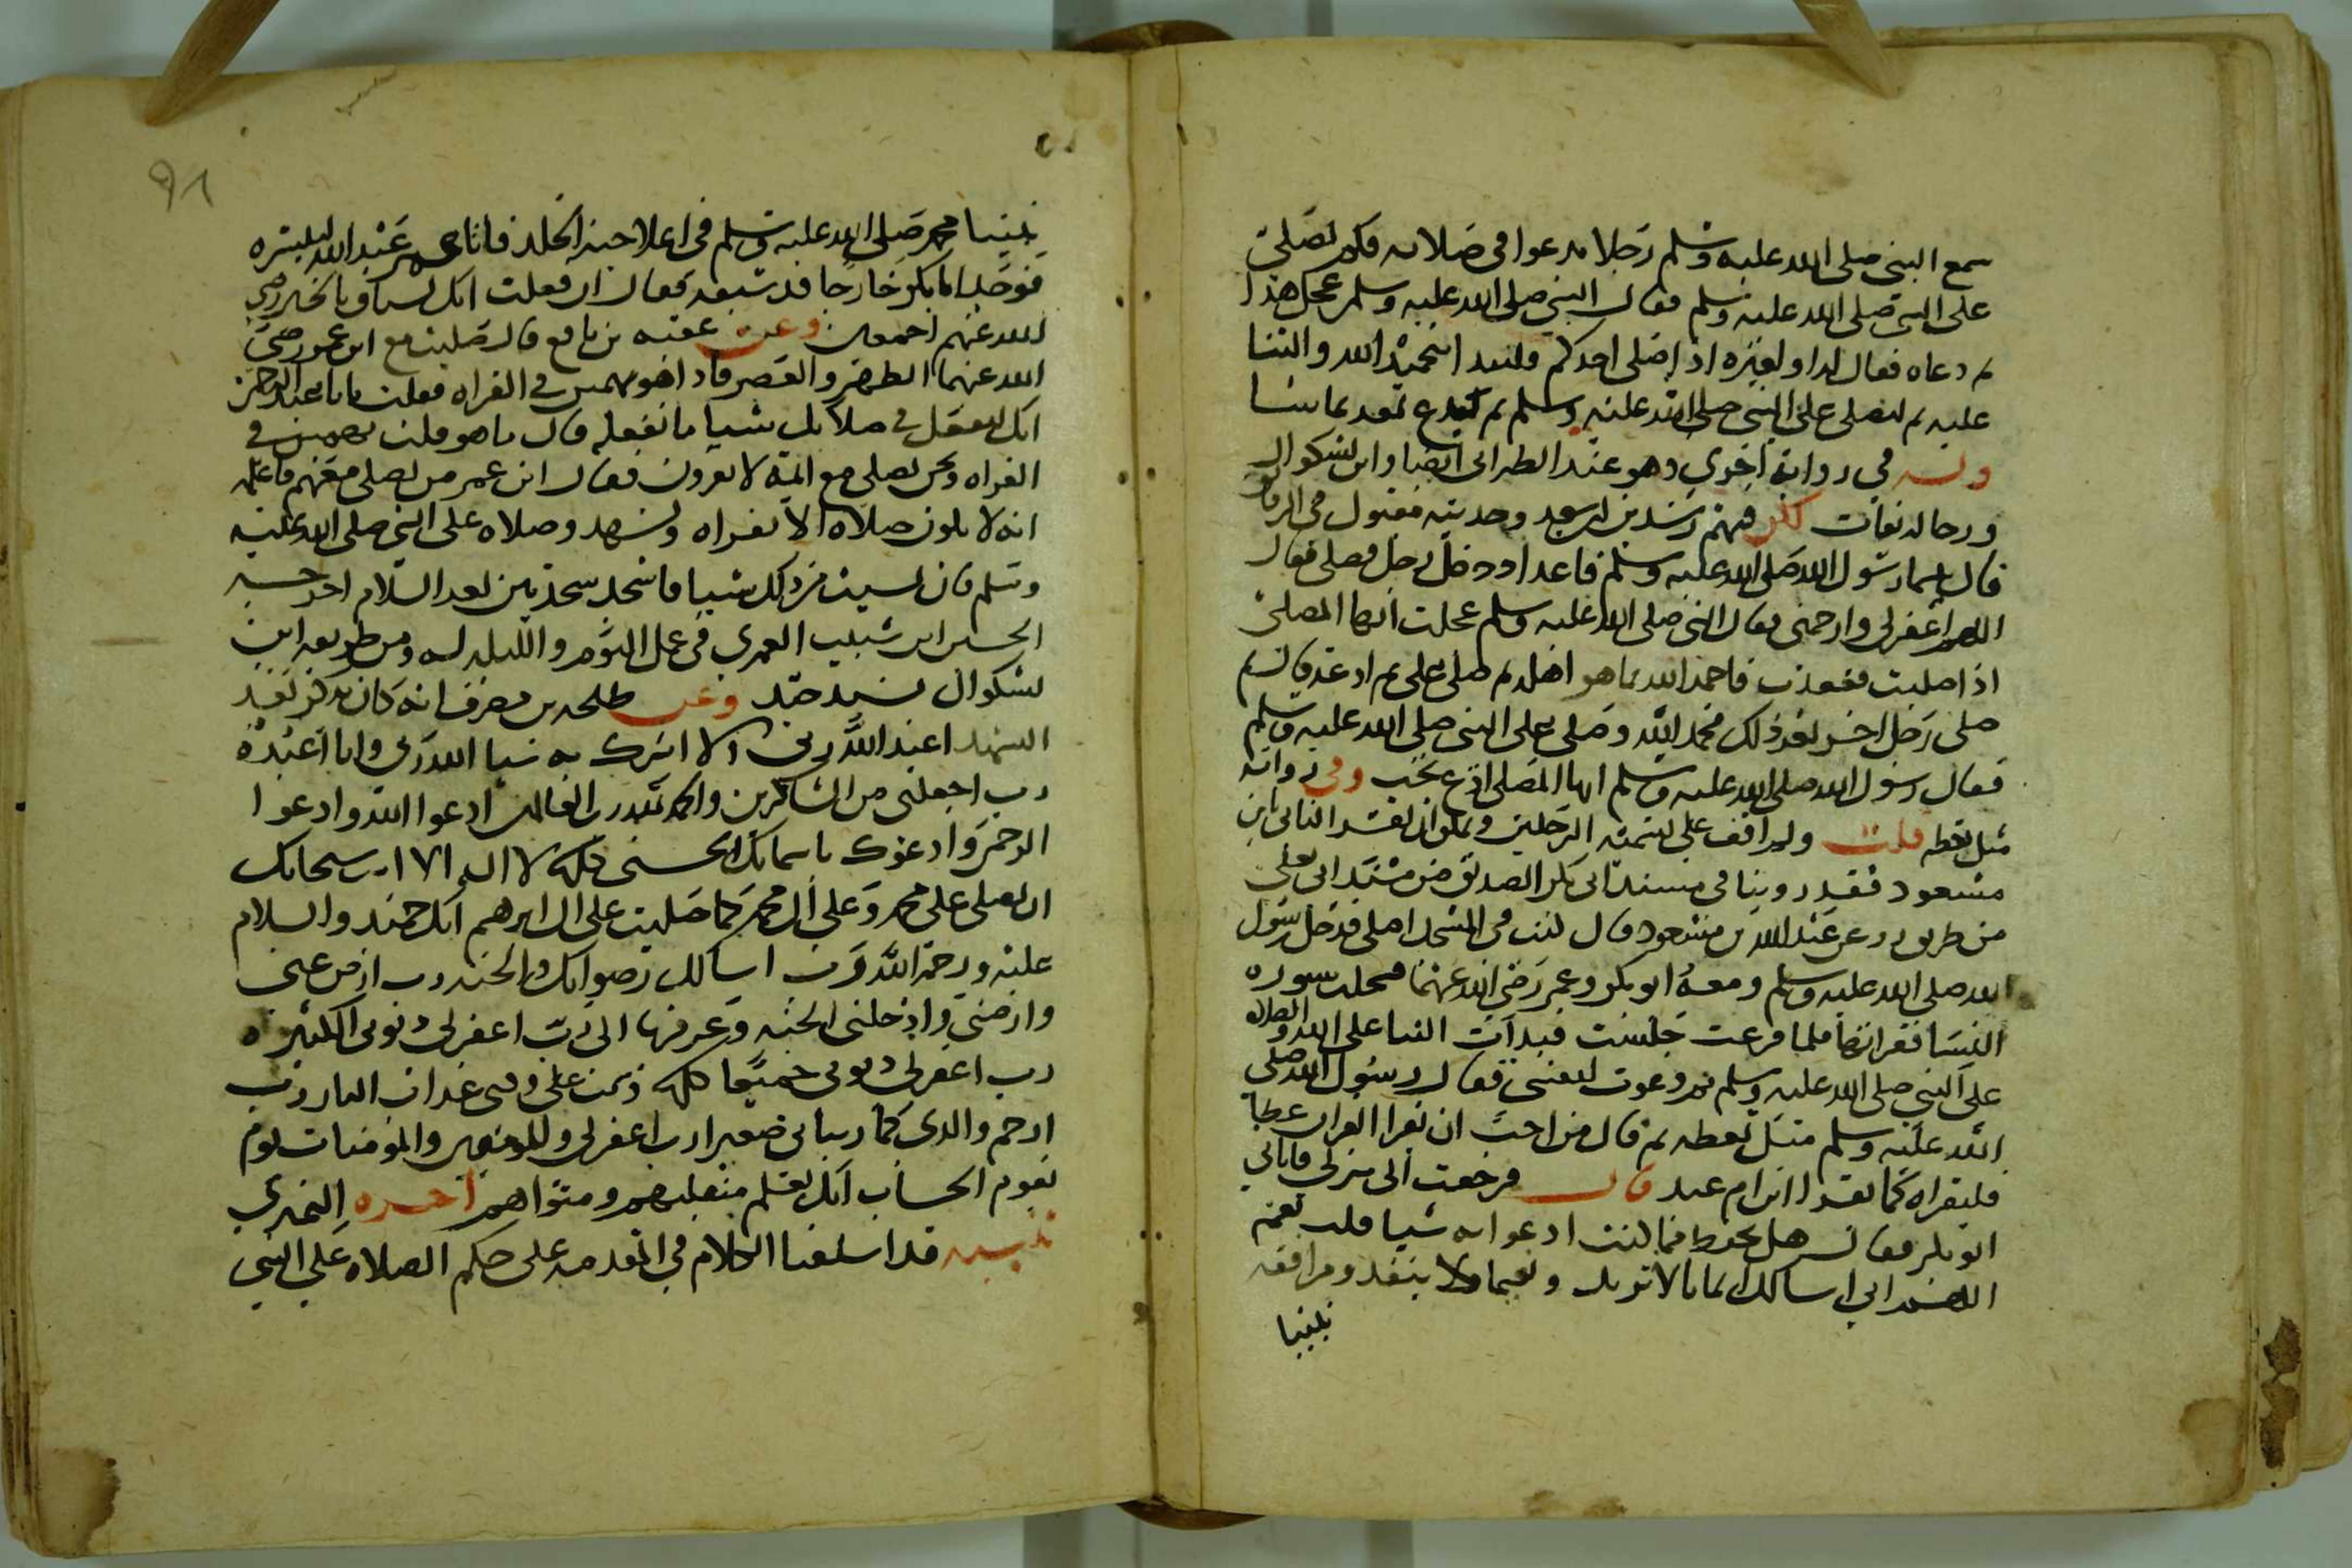 سمع النبي صلى الله عليه وسلم رجلا يدعوا في صلاته فلم يصلي
على النبي صلى الله عليه وسلم فقال النبي صلى الله عليه وسلم عجل هذا
ثم دعاه فقال له او لغيره اذا صلى احدكم فليبدا بتحميد الله والثنا
عليه ثم ليصلي على النبي صلى الله عليه وسلم ثم ليدع بعد بما شا
وفي رواية اخرى وهو عند الطبراني ايضا وابن بشكوال
ورجاله ثقات لكن فيهم رشدين بن سعد وحديثه مقبول في الرقائق
قال بينما رسول الله صلى الله عليه وسلم قاعد اذ دخل رجل فصلى فقال
اللهم اغفر لي وارحمني فقال النبي صلى الله عليه وسلم عجلت ايها المصلي
اذا صليت فقعدت فاحمد الله بما هو اهله ثم صلي علي ثم ادعه قال ثم
صلى رجل اخر بعد ذلك فحمد الله وصلى على النبي صلى الله عليه وسلم
فقال رسول الله صلى الله عليه وسلم ايها المصلي ادع تجب وفي رواية
سل تعطه قلت ولم اقف على تسمية الرجلين ويمكن ان يفسر الثاني بابن
مسعود فقد روينا في مسند ابي بكر الصديق من مسند ابي يعلى
من طريق زر عن عبد الله بن مسعود قال كنت في المسجد اصلي فدخل رسول
الله صلى الله عليه وسلم ومعه ابو بكر وعمر رضي الله عنهما فسحلت سورة
النسا فقراتها فلما فرغت جلست فبدات الثنا على الله والصلاة
على النبي صلى الله عليه وسلم ثم دعوت لنفسي فقال رسول الله صلى
الله عليه وسلم سل تعطه ثم قال من احب ان يقرا القران غطا
فليقراه كما يقرا ابن ام عبد قال فرجعت الى منزلي فاتاني
ابو بكر فقال هل تحفظ مما كنت ادعوا به شيا قلت نعم
اللهم اني اسالك ايمانا لا يرتد ونعيما لا ينفد ومرافقة
نبينا
نبينا محمد صلى الله عليه وسلم في اعلا جنة الخلد فاتا عمر عبد الله ليبشره
فوجد ابا بكر خارجا قد سبقه فقال ان فعلت انك لسباق بالخير رضي
الله عنهم اجمعين وعن عقبه بن نافع قال صليت مع ابن عمر رضي
الله عنهما الظهر والعصر فاذا هو يهمس في القراه فقلت يا ابا عبد الرحمن
انك لتفعل في صلاتك شيا ما نفعله قال ما هو قلت تهمس في
القراه ونحن نصلي مع ايمة لا يقرون فقال ابن عمر من يصلي معهم فاعلمه
انه لا تكون صلاة الا بقراه وتشهد وصلاه على النبي صلى الله عليه
وسلم فان نسيت من ذلك شيا فاسجد سجدتين بعد السلام اخرجه
الحسن ابن شبيب العمري في عمل اليوم والليله له ومن طريقه ابن
بشكوال بسند جيد وعن طلحه بن مصرف انه كان يذكر بعد
التشهد اعبد الله ربي ولا اشرك به شيا الله ربي وانا عبده
رب اجعلني من الشاكرين والحمد لله رب العالمين ادعوا الله وادعوا
الرحمن وادعوك باسمائك الحسنى كلها لا اله الا انت سبحانك
ان تصلي على محمد وعلى ال محمد كما صليت على ال ابرهيم انك حميد والسلام
عليه ورحمة الله رب اسالك رضوانك والجنه رب ارض عني
وارضني وادخلني الجنه وعرفها الي رب اغفر لي ذنوبي الكثيره
رب اغفر لي ذنوبي جميعا كلها وتب علي وقني عذاب النار رب
ارحم والدي كما ربياني صغيرا رب اغفر لي وللمومنين والمومنات يوم
يقوم الحساب انك تعلم متقلبهم ومثواهم اخرجه النميري
تنبيه قد اسلفنا الكلام في المقدمه على حكم الصلاه على النبي